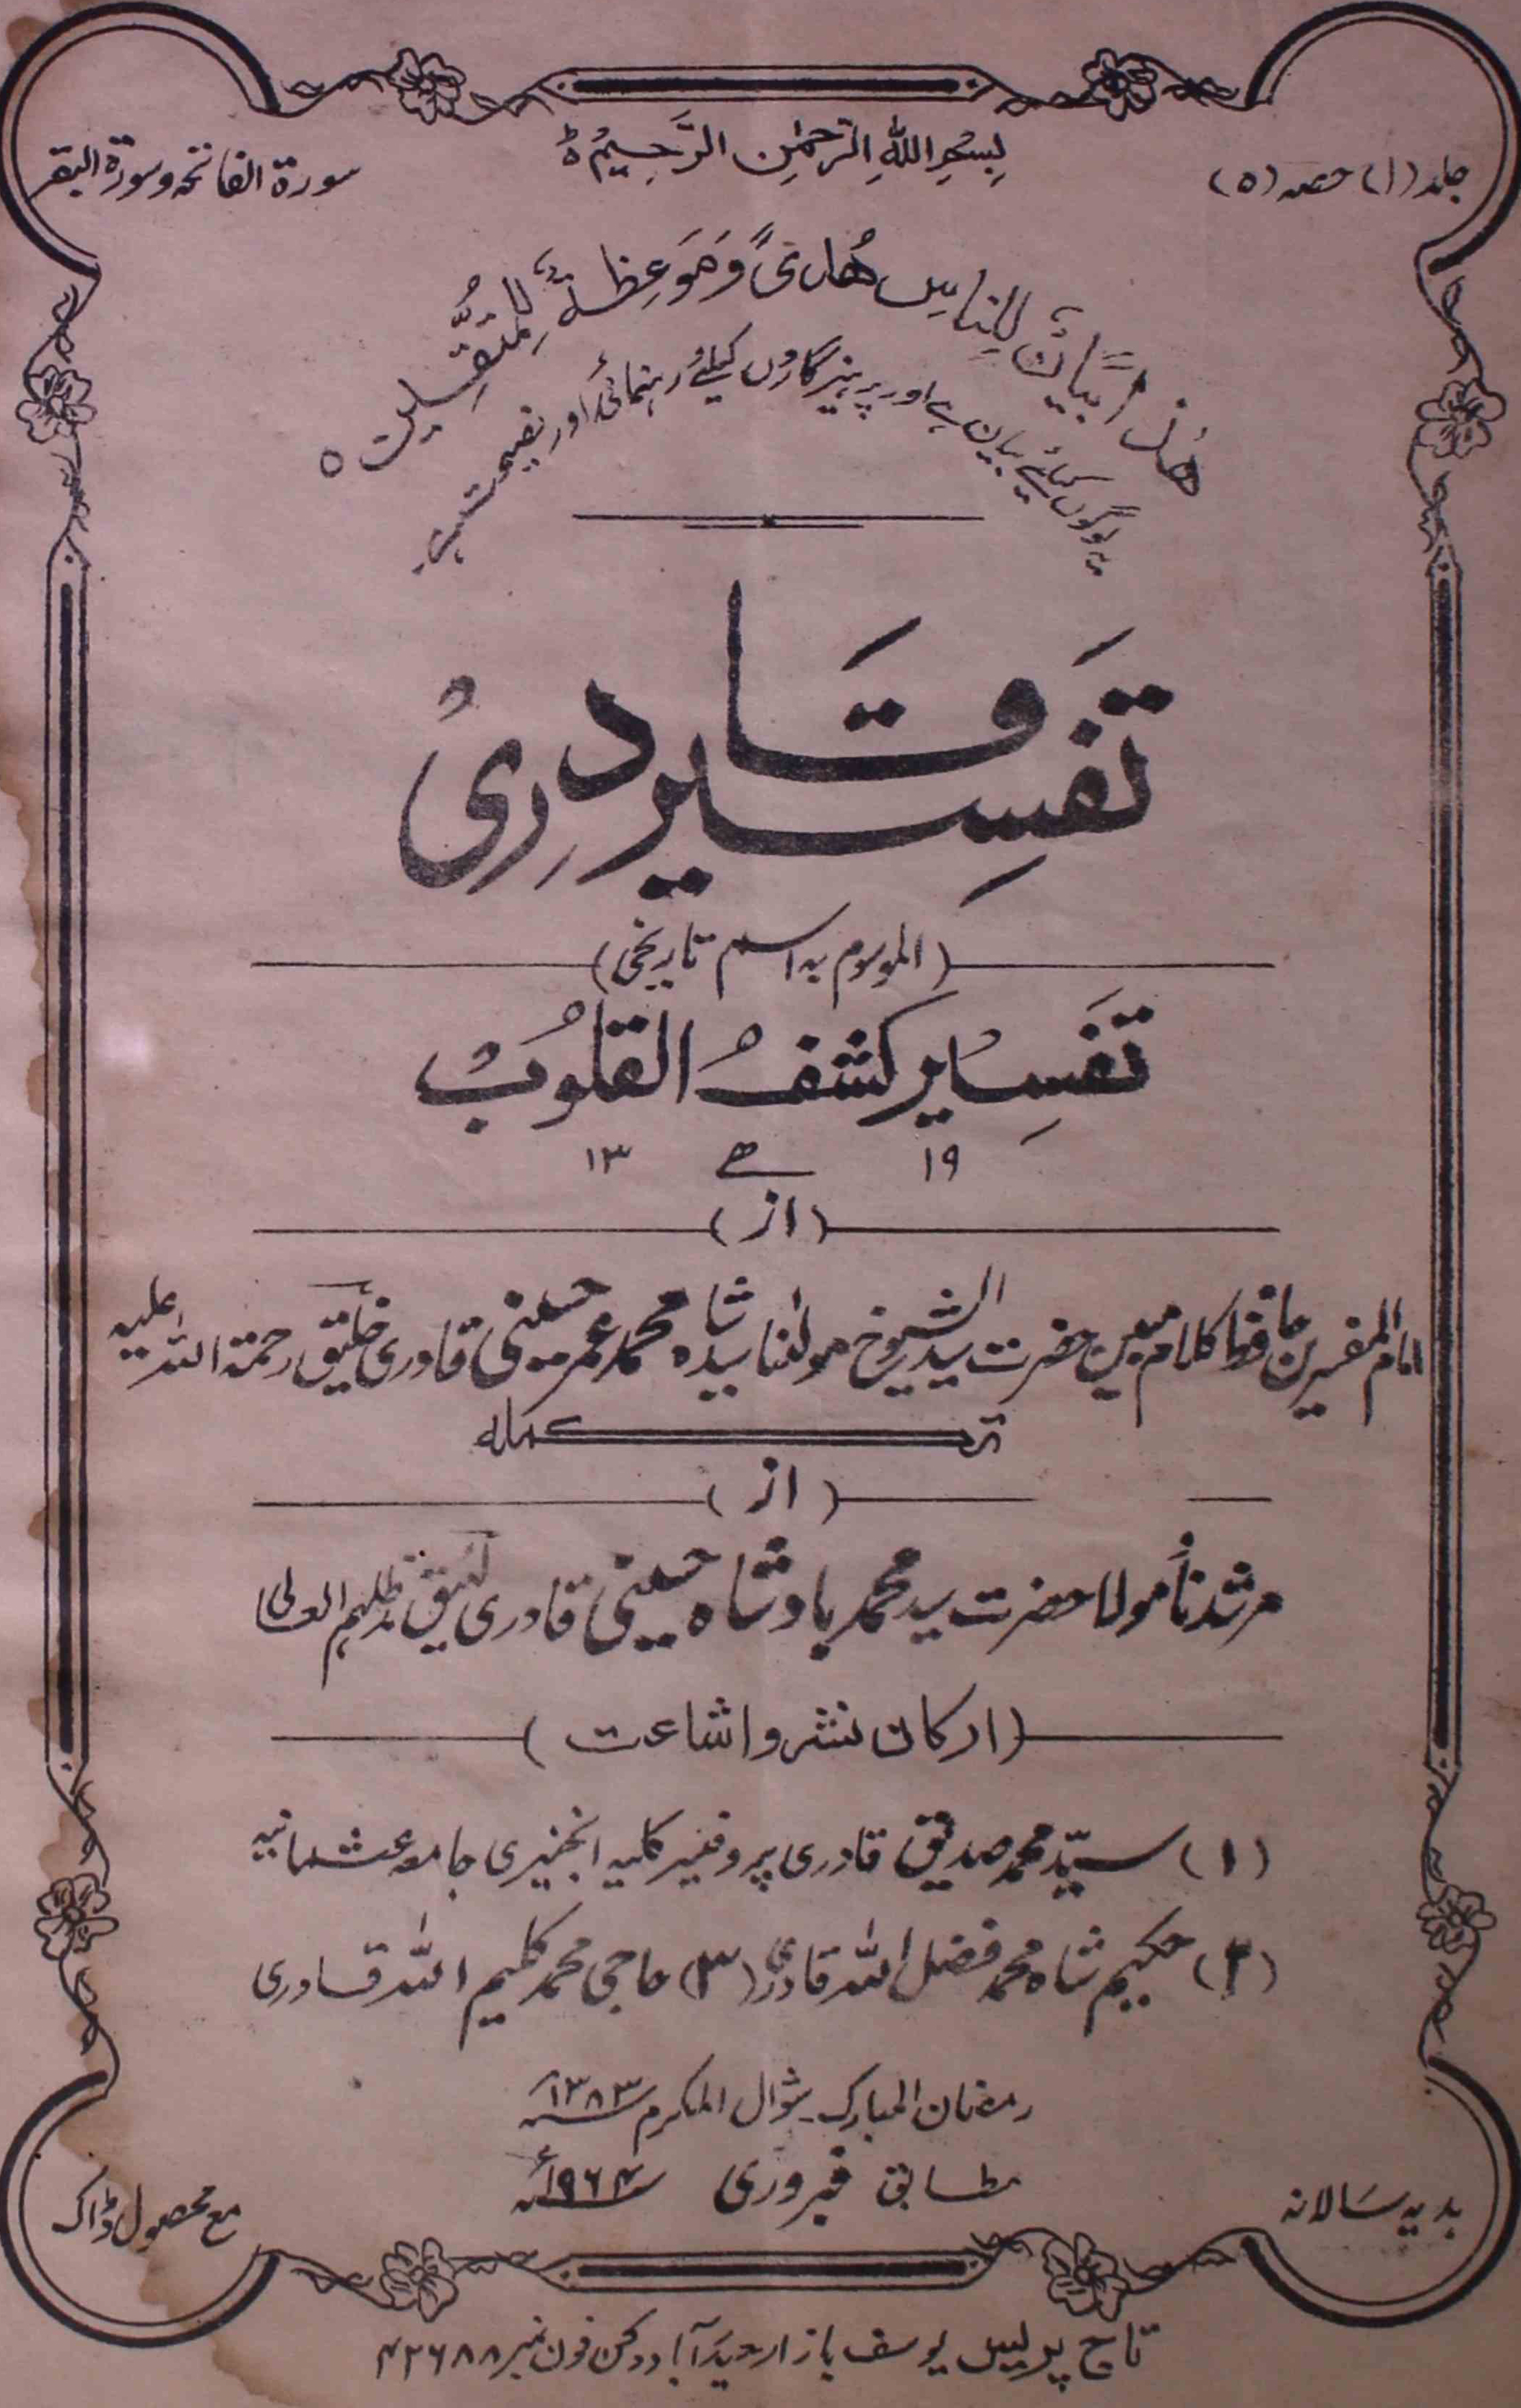 جلد (۱) حصہ (۵)
بِسْمِ اللهِ الرَّحْمٰنِ الرَّحِيْمِ ہ
سورۃ الفاتحہ و سورۃ البقر
هٰذَا بَيَانٌ لِّلنَّاسِ هُدًى وَّمَوْعِظَةٌ لِّلْمُتَّقِيْنَ ہ
یہ لوگوں کیلئے بیان ہے اور پرہیزگاروں کیلئے رہنمائی اور نصیحت ہے۔
تَفسِیر قَادِری
(الموسوم بہ اسم تاریخی)
تَفسِیر کشفُ القلُوبْ
۱۹ ھ ۱۳
(از)
امام المفسرین حافظ کلام مبین حضرت سید الشیوخ مولٰنا سید شاہ محمد عمر حسینی قادری خلیق رحمۃ اللہ علیہ
تکملہ
(از)
مرشدنا مولانا حضرت سید محمد بادشاہ حسینی قادری لئیق مدظلہم العالی
(ارکان نشر و اشاعت)
(۱) سیّد محمد صدیق قادری پروفیسر کلیہ انجنیری جامعہ عثمانیہ
(۲) حکیم شاہ محمد فضل اللہ قادری (۳) حاجی محمد کلیم اللہ قادری
رمضان المبارک۔ شوال المکرم ۱۳۸۳ھ
مطابق فبروری ۱۹۶۴ء
ہدیہ سَالانہ
مع محصول ڈاک
تاج پریس یوسف بازار حیدرآباد دکن فون نمبر ۴۲۶۸۸